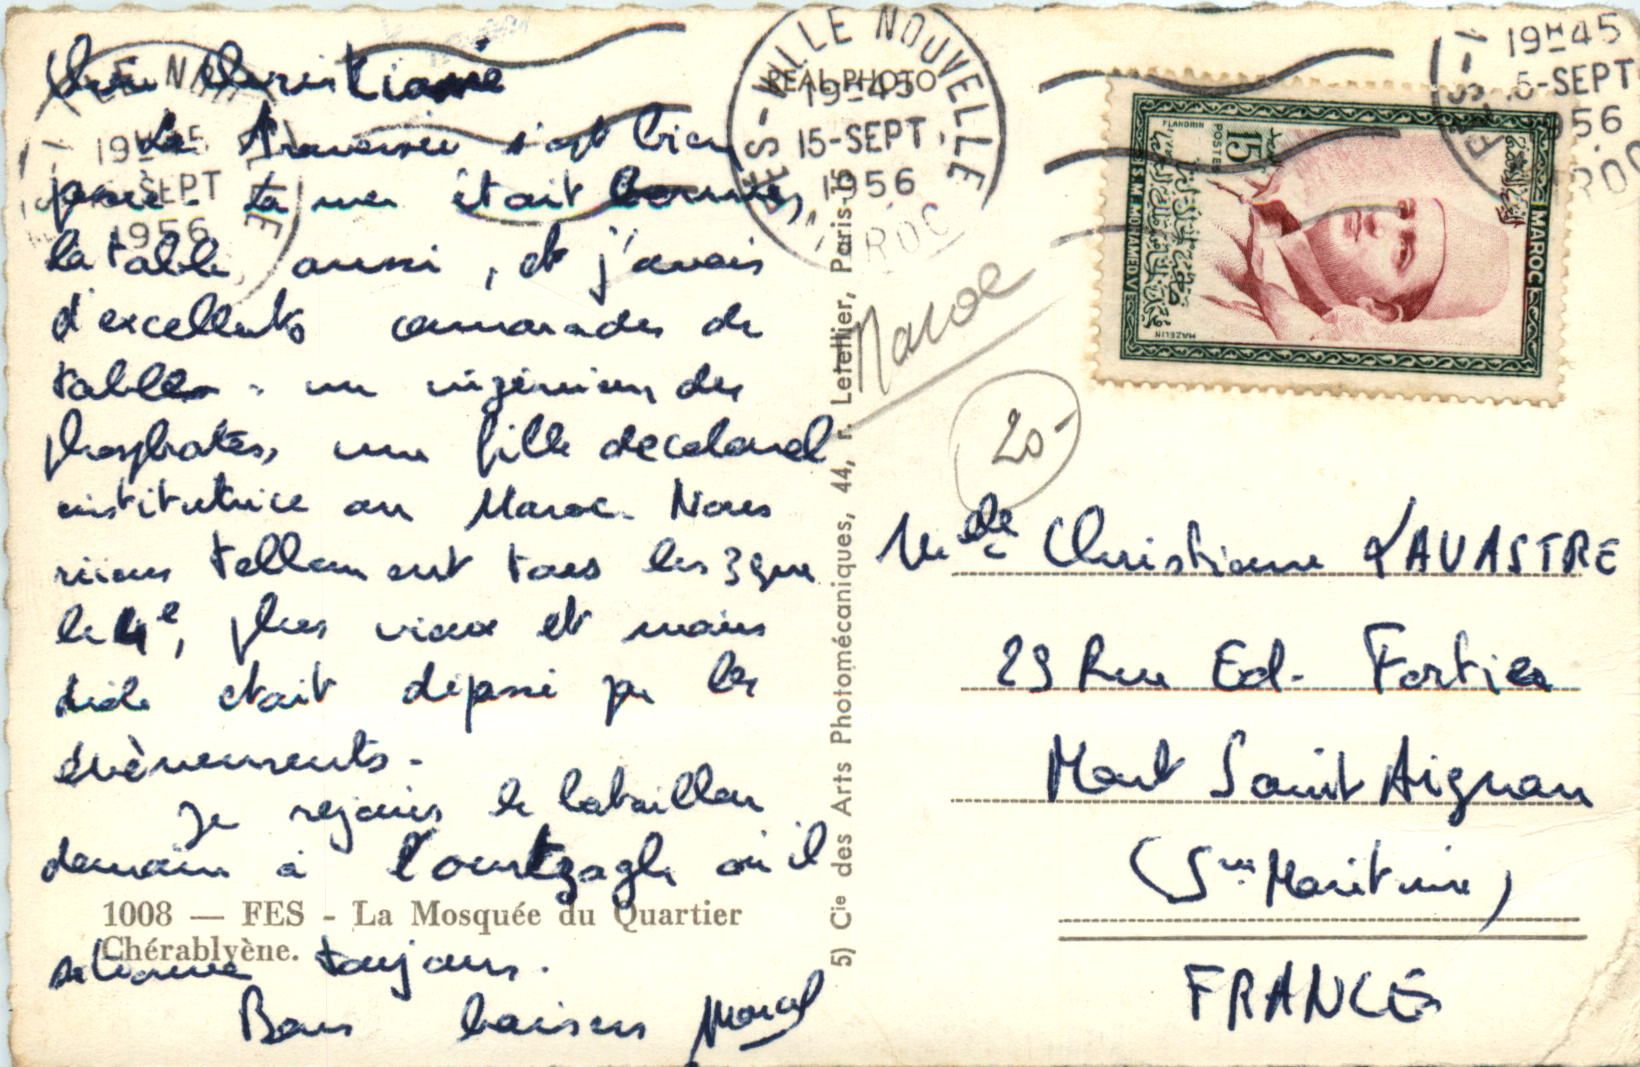 Chère Christiane
La Traversée s'est bien
passée. la mer était bonne,
la table, aussi, et j'avais
d'excellents camarades de
table - un ingénieur des
phosphates, une fille de colonel
institutrice au Maroc. Nous
riions tellement tous les 3 que
le 4e, plus vieux et moins
était dépassé par les
évènements.
Je rejoins le bataillon
demain à où il
se trouve toujours.
Bons baisers Marcel
1008 — FES - La Mosquée du Quartier
Chérablyène.
5) Cie des Arts Photomécaniques, 44, r. Letellier, Paris-15
REAL PHOTO
FES-VILLE NOUVELLE
19H45
15-SEPT
1956
MAROC
19H45
15-SEPT
1956
19H45
15-SEPT
1956
MAROC
15F
POSTES
S.M. MOHAMMED V
FLANDRIN
MAZELIN
Maroc
20-
Melle Christiane LAVASTRE
29 Rue Ed. Fortier
Mont Saint Aignan
(Sne Maritime)
FRANCE